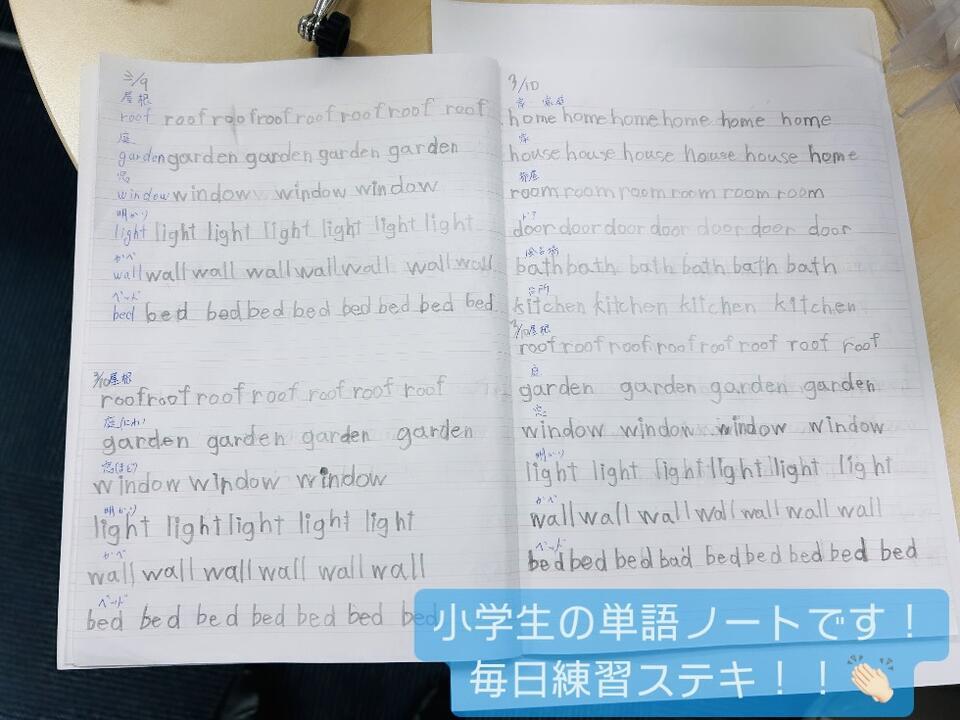 3/9
屋根
roof roof roof roof roof roof roof roof
庭
garden garden garden garden garden
窓
window window window window
明かり
light light light light light light light
かべ
wall wall wall wall wall wall wall wall
ベッド
bed bed bed bed bed bed bed bed bed
3/10 屋根
roof roof roof roof roof roof roof
庭(にわ)
garden garden garden garden
窓(まど)
window window window
明かり
light light light light light
かべ
wall wall wall wall wall wall
ベッド
bed bed bed bed bed bed bed
3/10
家 家庭
home home home home home home
家
house house house house house home
部屋
room room room room room room
ドア
door door door door door door door
風呂場
bath bath bath bath bath bath
台所
kitchen kitchen kitchen kitchen
3/10 屋根
roof roof roof roof roof roof roof roof
庭
garden garden garden garden
窓
window window window window
明かり
light light light light light light
かべ
wall wall wall wall wall wall wall
ベッド
bed bed bed bad bed bed bed bed bed
小学生の単語ノートです！
毎日練習ステキ！！👏🏻